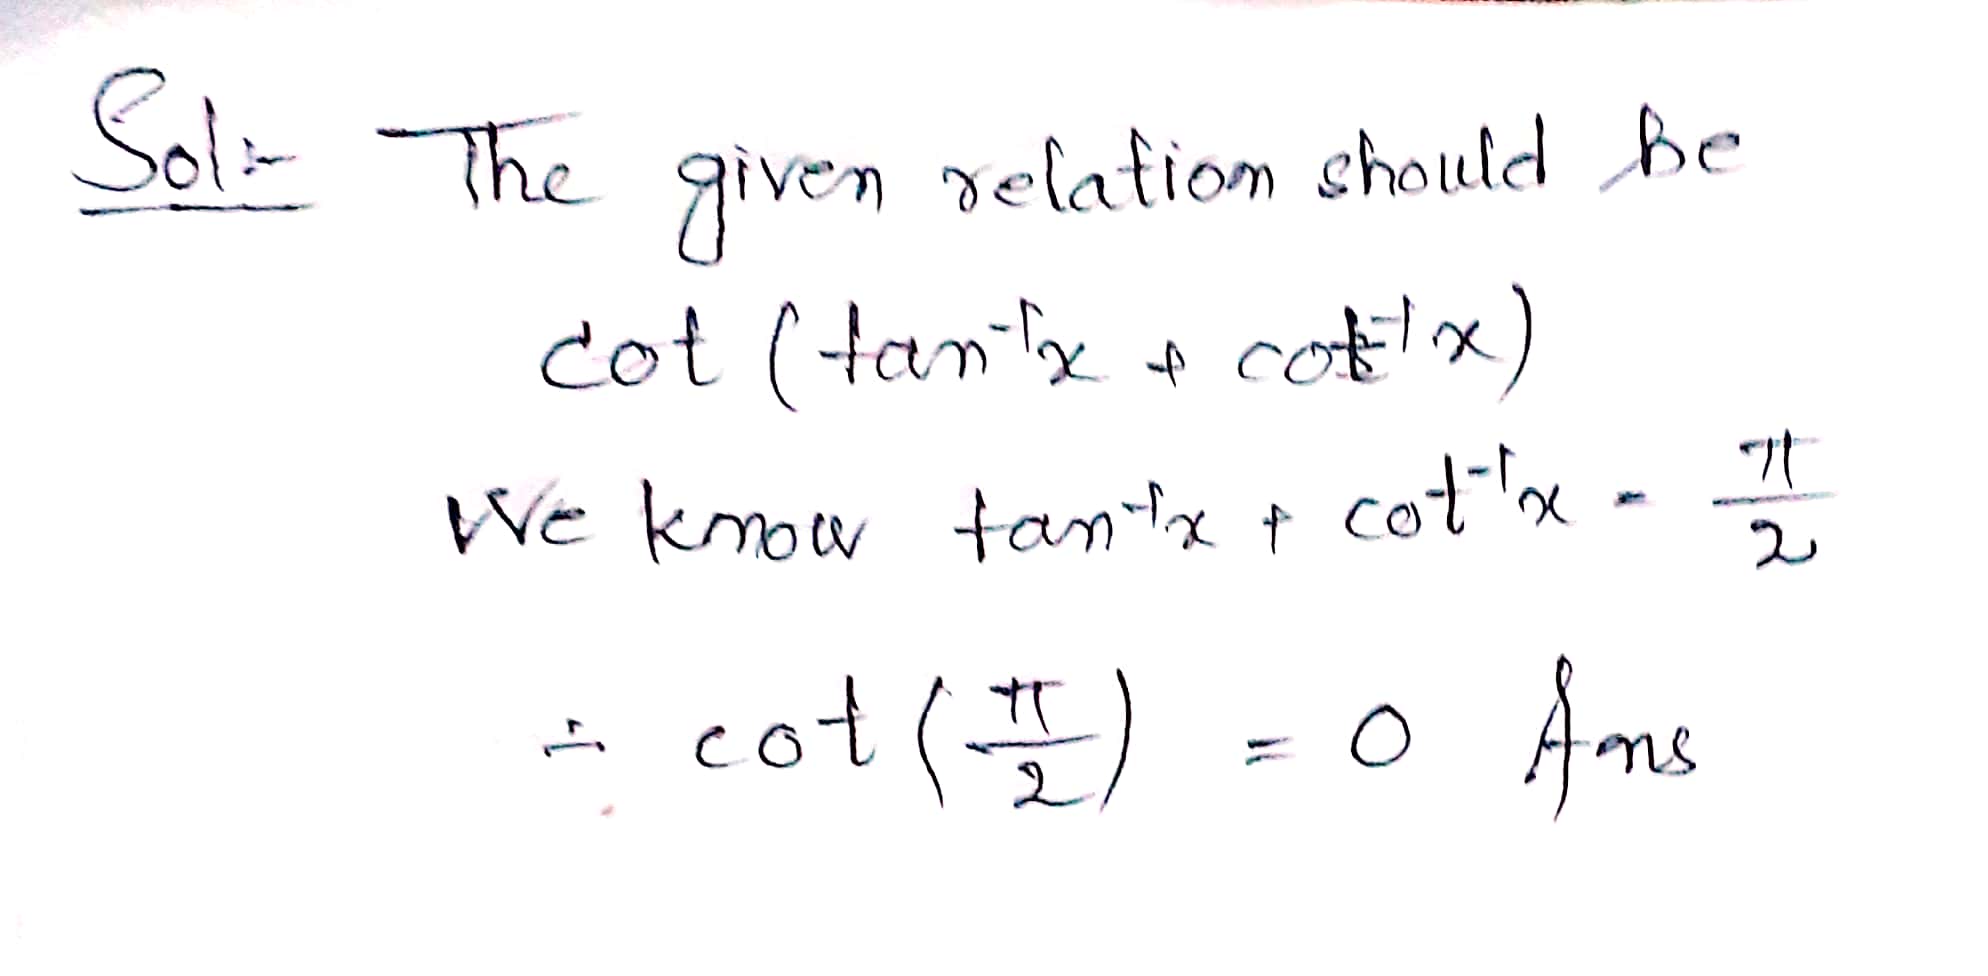 Sol:- The given relation should be
cot (tan⁻¹x + cot⁻¹x)
We know tan⁻¹x + cot⁻¹x = π/2
∴ cot (π/2) = 0 Ans